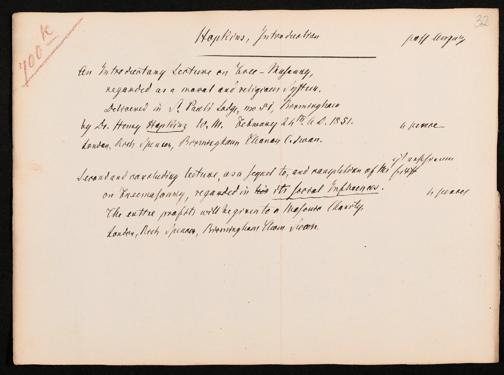 32
700 k
Hopkins, Introduction
An Introductory Lecture on Free-Masonry,
regarded as a moral and religious system.
Delivered in St. Paul's Lodge, no 51, Birmingham
by Dr. Henry Hopkins W. M. February 24th A.D. 1851. 6 pence
London, Rich Spencer, Birmingham
Second and concluding lecture, as a sequel to, and completion of the first
on Freemasonry, regarded in its social Influences. 6 pence
The entire profits will be given to a Masonic Charity.
London, Rich Spencer, Birmingham